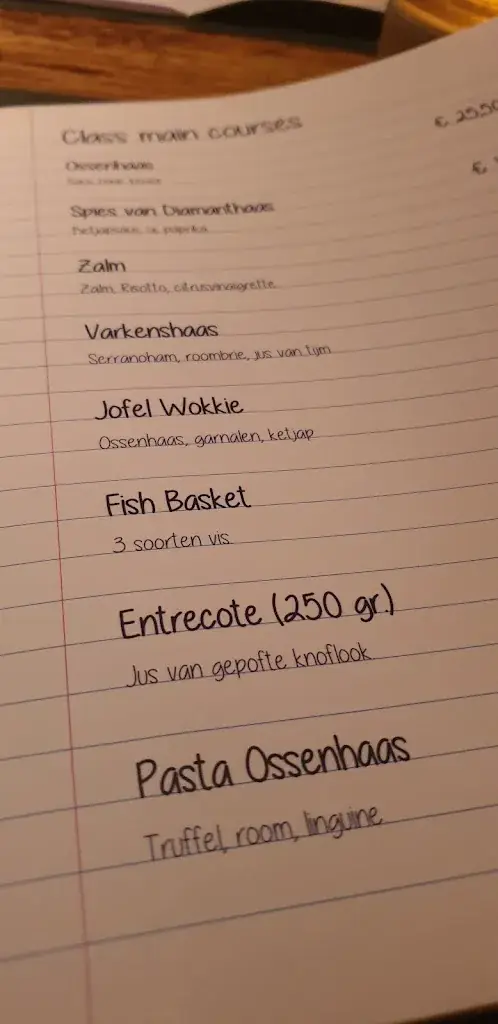 Class main courses
Ossenhaas € 25.50
€
Spies van Diamanthaas
Ketjapsaus, paprika
Zalm
Zalm, Risotto, citrusvinaigrette
Varkenshaas
Serranoham, roombrie, jus van tijm
Jofel Wokkie
Ossenhaas, garnalen, ketjap
Fish Basket
3 soorten vis
Entrecote (250 gr.)
Jus van gepofte knoflook
Pasta Ossenhaas
Truffel, room, linguine